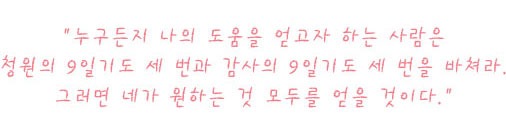 "누구든지 나의 도움을 얻고자 하는 사람은
청원의 9일기도 세 번과 감사의 9일기도 세 번을 바쳐라.
그러면 네가 원하는 것 모두를 얻을 것이다."